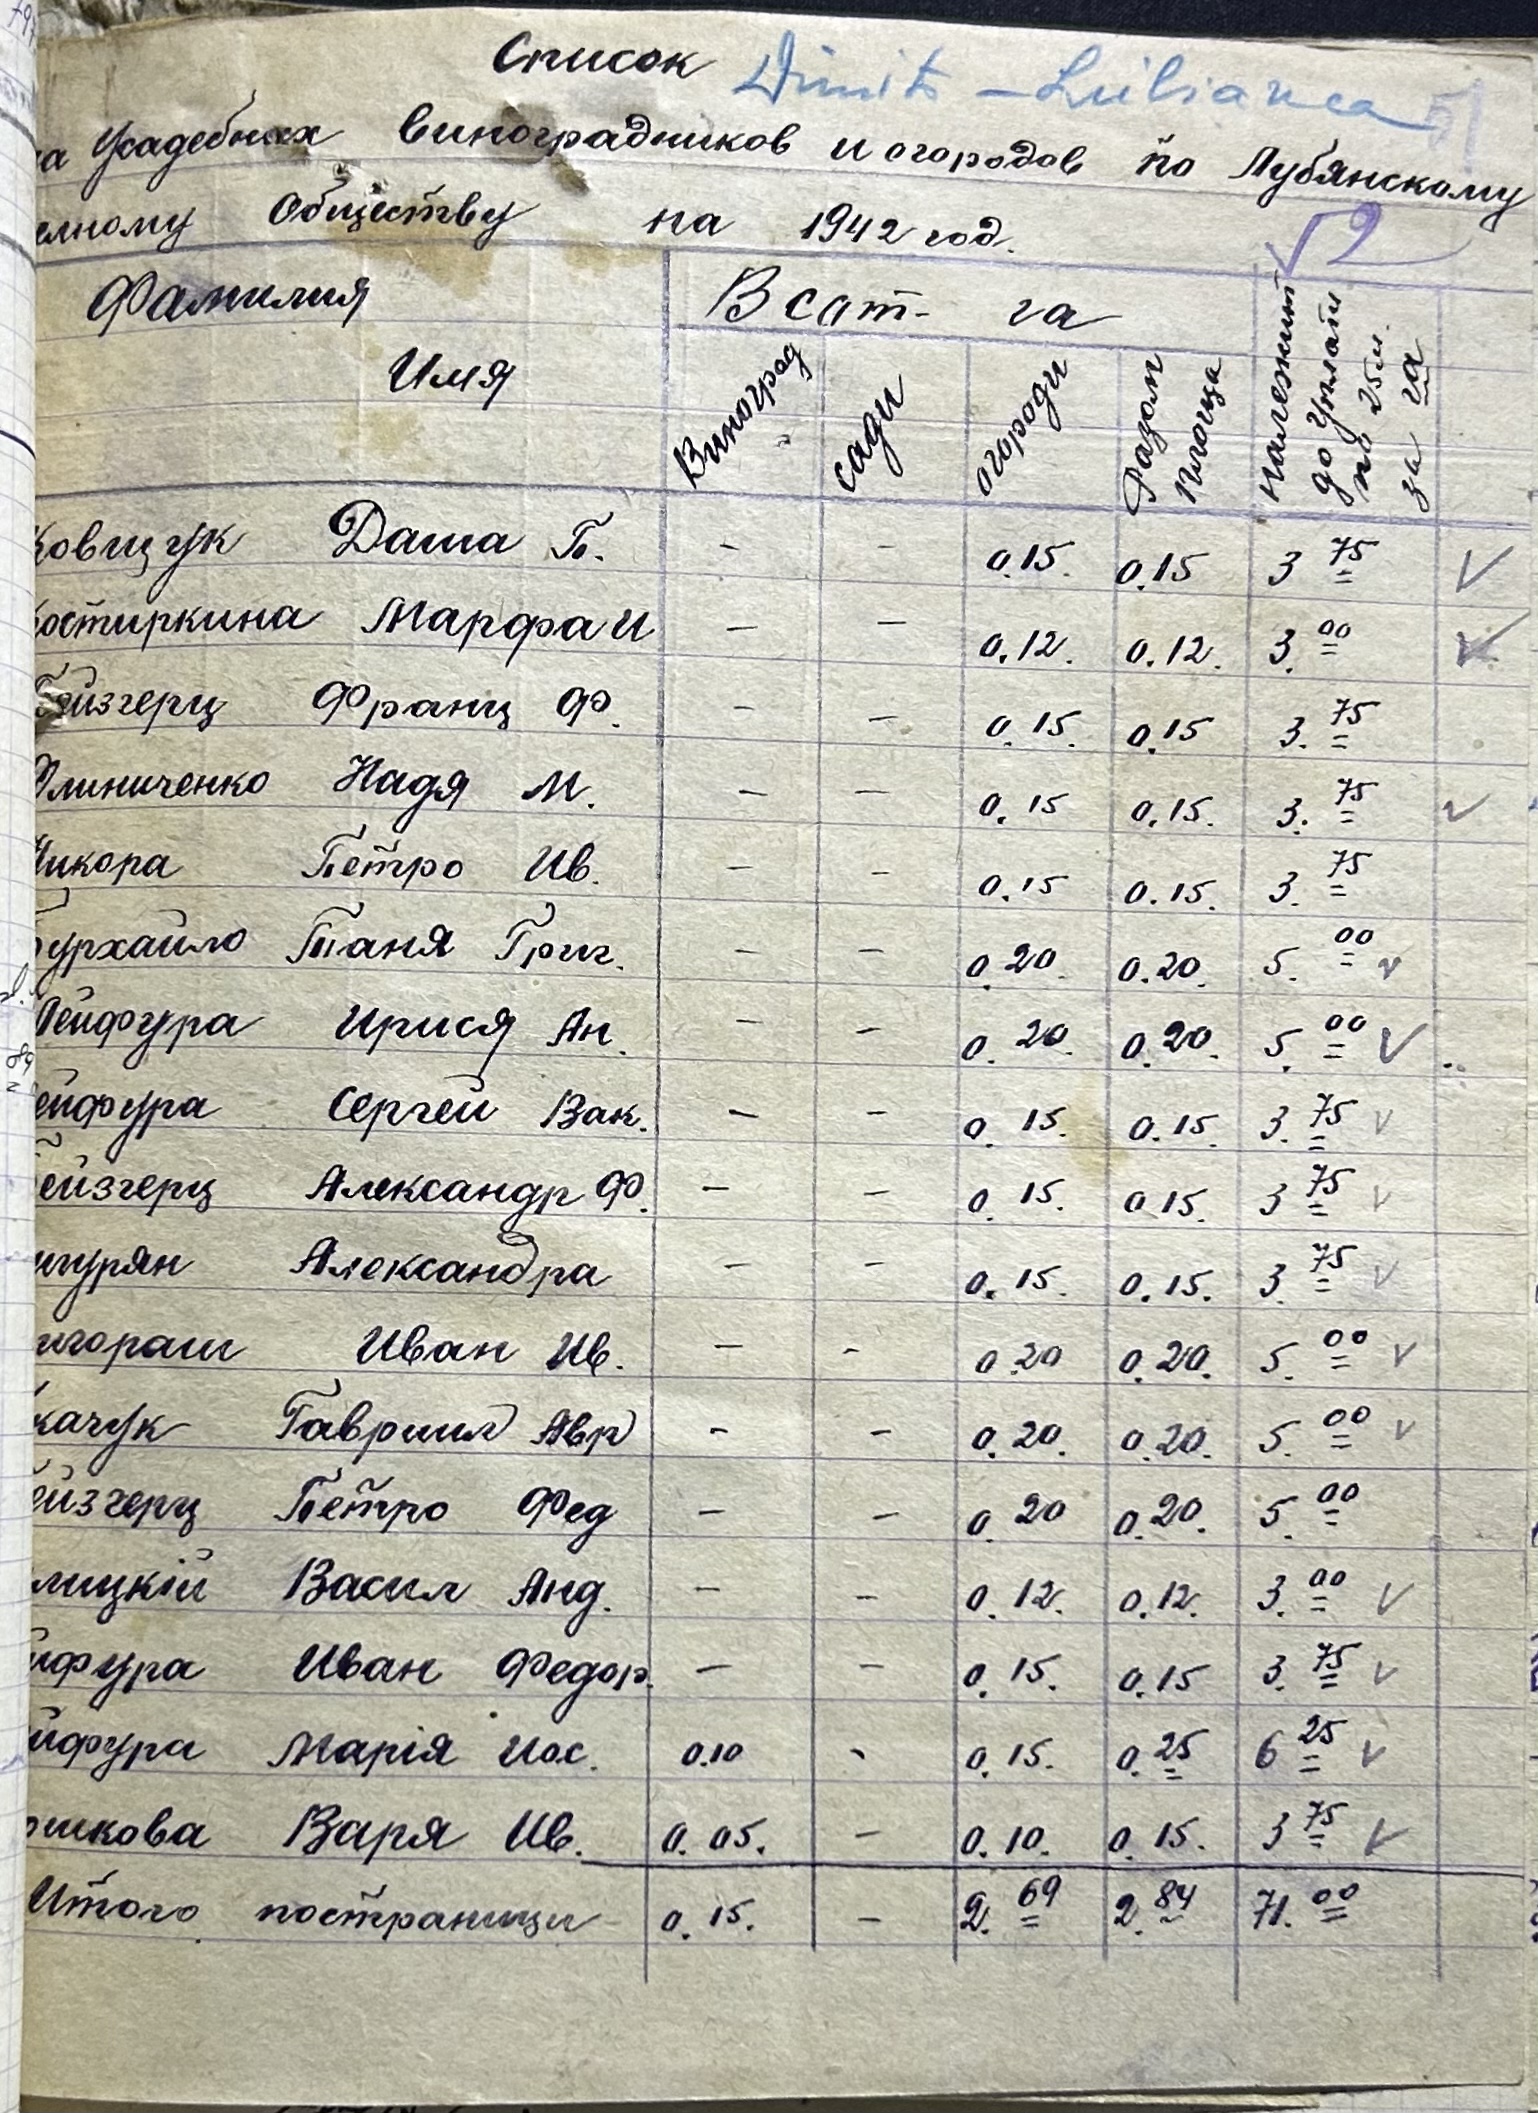 Список
усадебных виноградников и огородов по Лубянскому
Обществу на 1942 год.
Фамилия Имя
В сот- га
Виноград сади огороди Разом площа належит до уплати по 25 м. за га
ковщук Даша П. - - 0.15. 0.15 3 75 V
костиркина Марфа И - - 0.12. 0.12. 3. 00 V
ейзгерц Франц Ф. - - 0.15. 0.15 3. 75
линиченко Надя М. - - 0.15 0.15. 3. 75 V
икора Петро Ив. - - 0.15 0.15. 3. 75
урхайло Таня Григ. - - 0.20. 0.20. 5. 00 V
ейфура Ирися Ан. - - 0.20. 0.20. 5. 00 V
ейфура Сергей Вак. - - 0.15. 0.15. 3. 75 V
ейзгерц Александр Ф. - - 0.15. 0.15. 3 75 V
игурян Александра - - 0.15. 0.15. 3. 75 V
игораш Иван Ив. - - 0.20 0.20. 5. 00 V
качук Гавриил Авр - - 0.20. 0.20. 5. 00 V
ейзгерц Петро Фед - - 0.20 0.20. 5. 00
лицкій Васил Анд. - - 0.12. 0.12. 3. 00 V
йфура Иван Федор. - - 0.15. 0.15 3. 75 V
йфура Марія Иос. 0.10 - 0.15. 0.25 6 25 V
шкова Варя Ив. 0.05. - 0.10. 0.15. 3 75 V
Итого постраници 0.15. - 2. 69 2. 84 71. 00